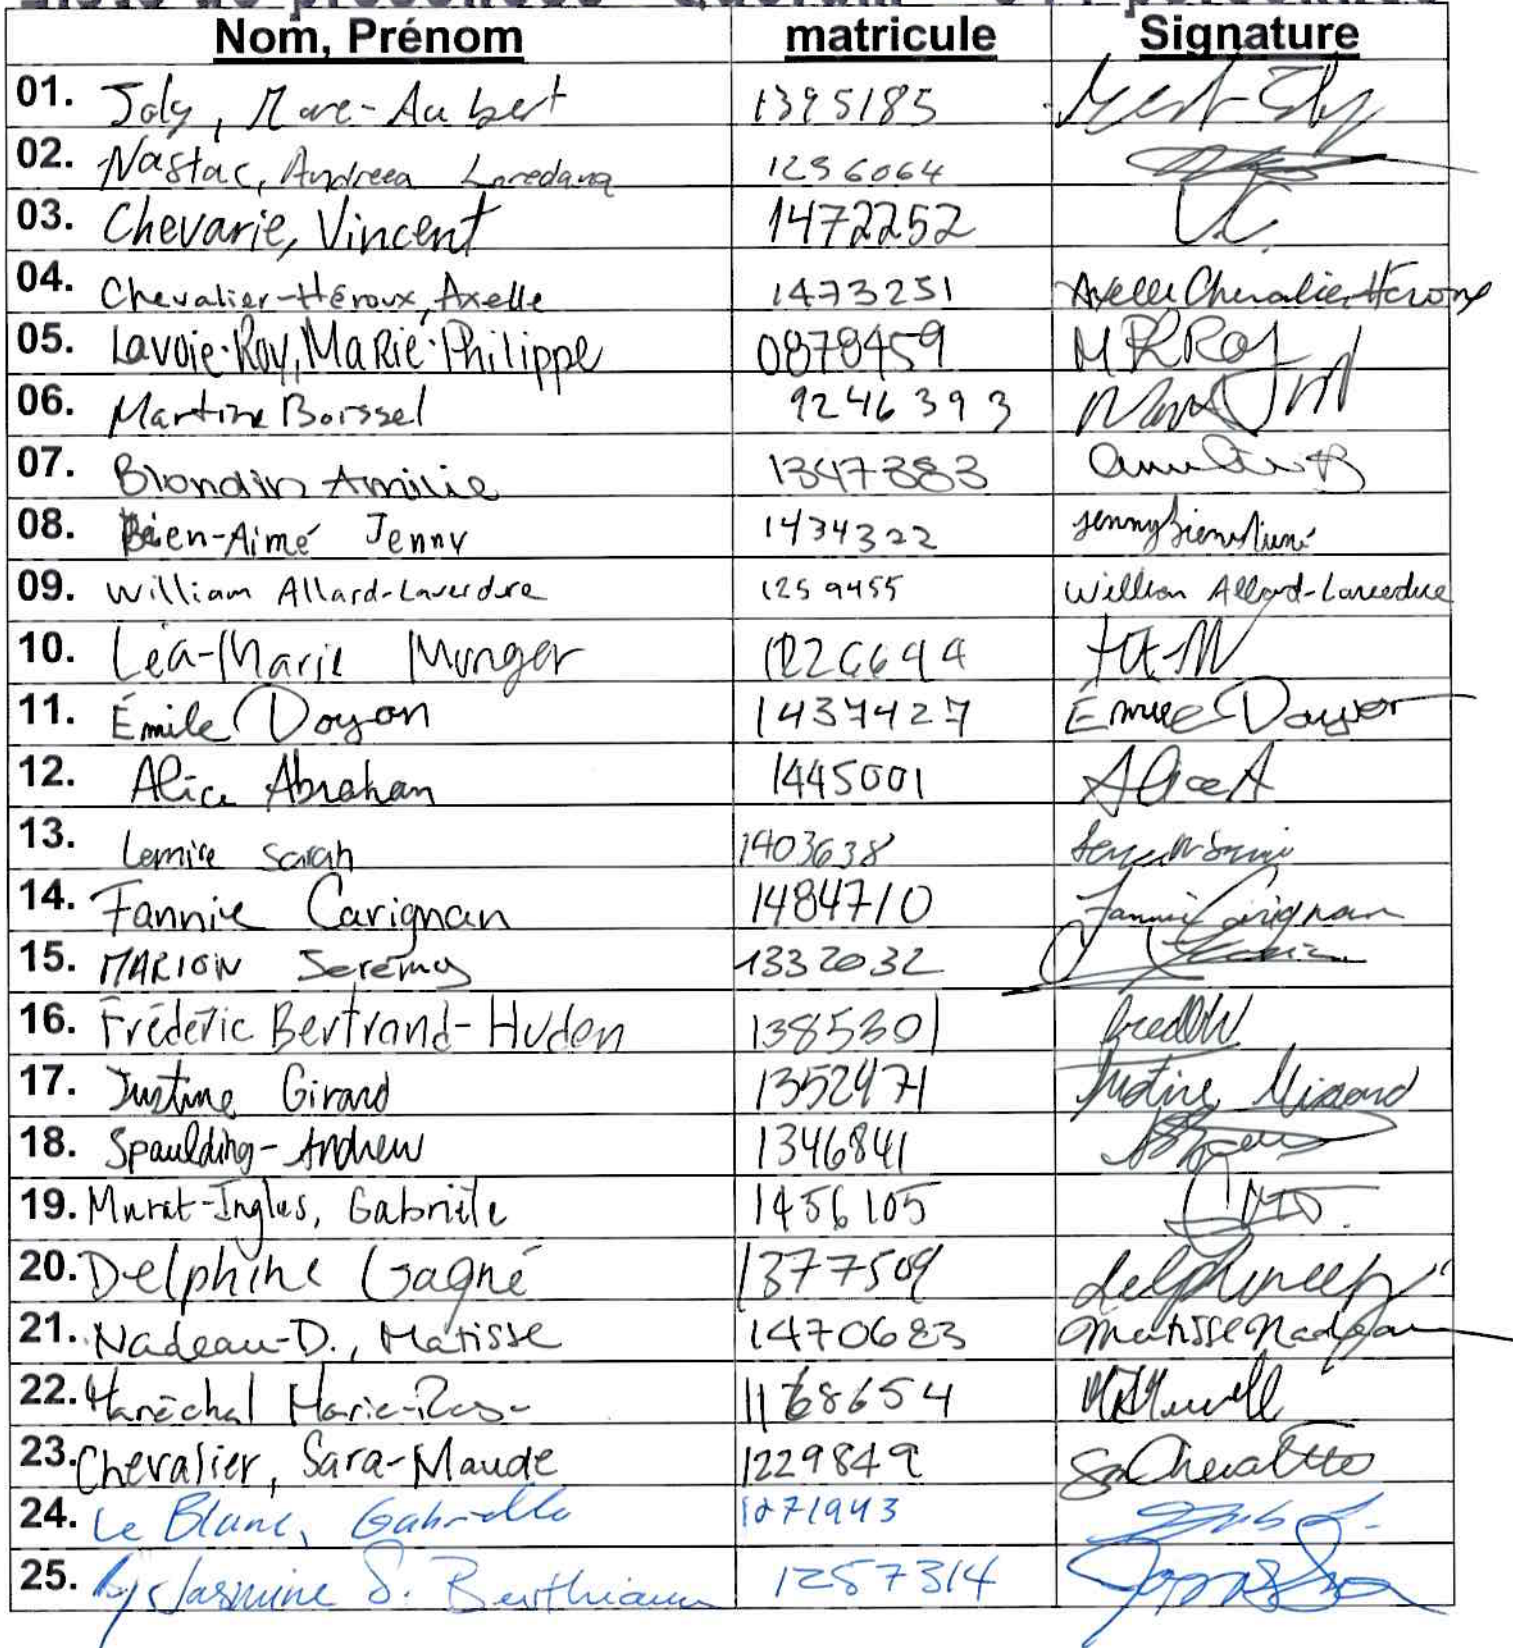 Nom, Prénom matricule Signature
01. Joly, Marc-Aubert 1395185
02. Nastac, Andreea Loredana 1256064
03. Chevarie, Vincent 1472252 V.C.
04. Chevalier-Héroux, Axelle 1473251 Axelle Chevalier-Héroux
05. Lavoie-Roy, Marie-Philippe 0878459 MPRoy
06. Martine Boissel 9246393
07. Blondin Amilie 1347383
08. Bien-Aimé Jenny 1434322 Jenny Bien-Aimé
09. William Allard-Laverdure 1259455 William Allard-Laverdure
10. Léa-Marie Munger
11. Émile Doyon 1437427 Émile Doyon
12. Alice Abraham 1445001 Alice A
13. Lemire Sarah 1403638
14. Fannie Carignan 1484710 Fannie Carignan
15. MARION Jérémy 1332032
16. Frédéric Bertrand-Hudon 1385301
17. Justine Girard 1352471 Justine Girard
18. Spaulding-Andrew 1346841
19. Murat-Ingles, Gabrièle 1456105
20. Delphine Gagné 1377509
21. Nadeau-D., Matisse 1470683 Matisse Nadeau
22. Maréchal Marie-Rose 1168654
23. Chevalier, Sara-Maude 1229849
24. Le Blanc, Gabrielle
25. Jasmine S. Berthiaume 1257314